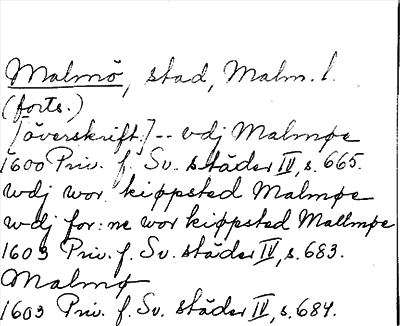 Malmö, stad, Malm. l.
(forts.)
[överskrift:] -- vdj Malmøe
1600 Priv. f. Sv. städer IV, s. 665.
wdj wor kiøpsted Malmøe
wdj for: ne wor kiøpsted Mallmøe
1603 Priv. f. Sv. städer IV, s. 683.
Malmø
1603 Priv. f. Sv. städer IV, s. 684.